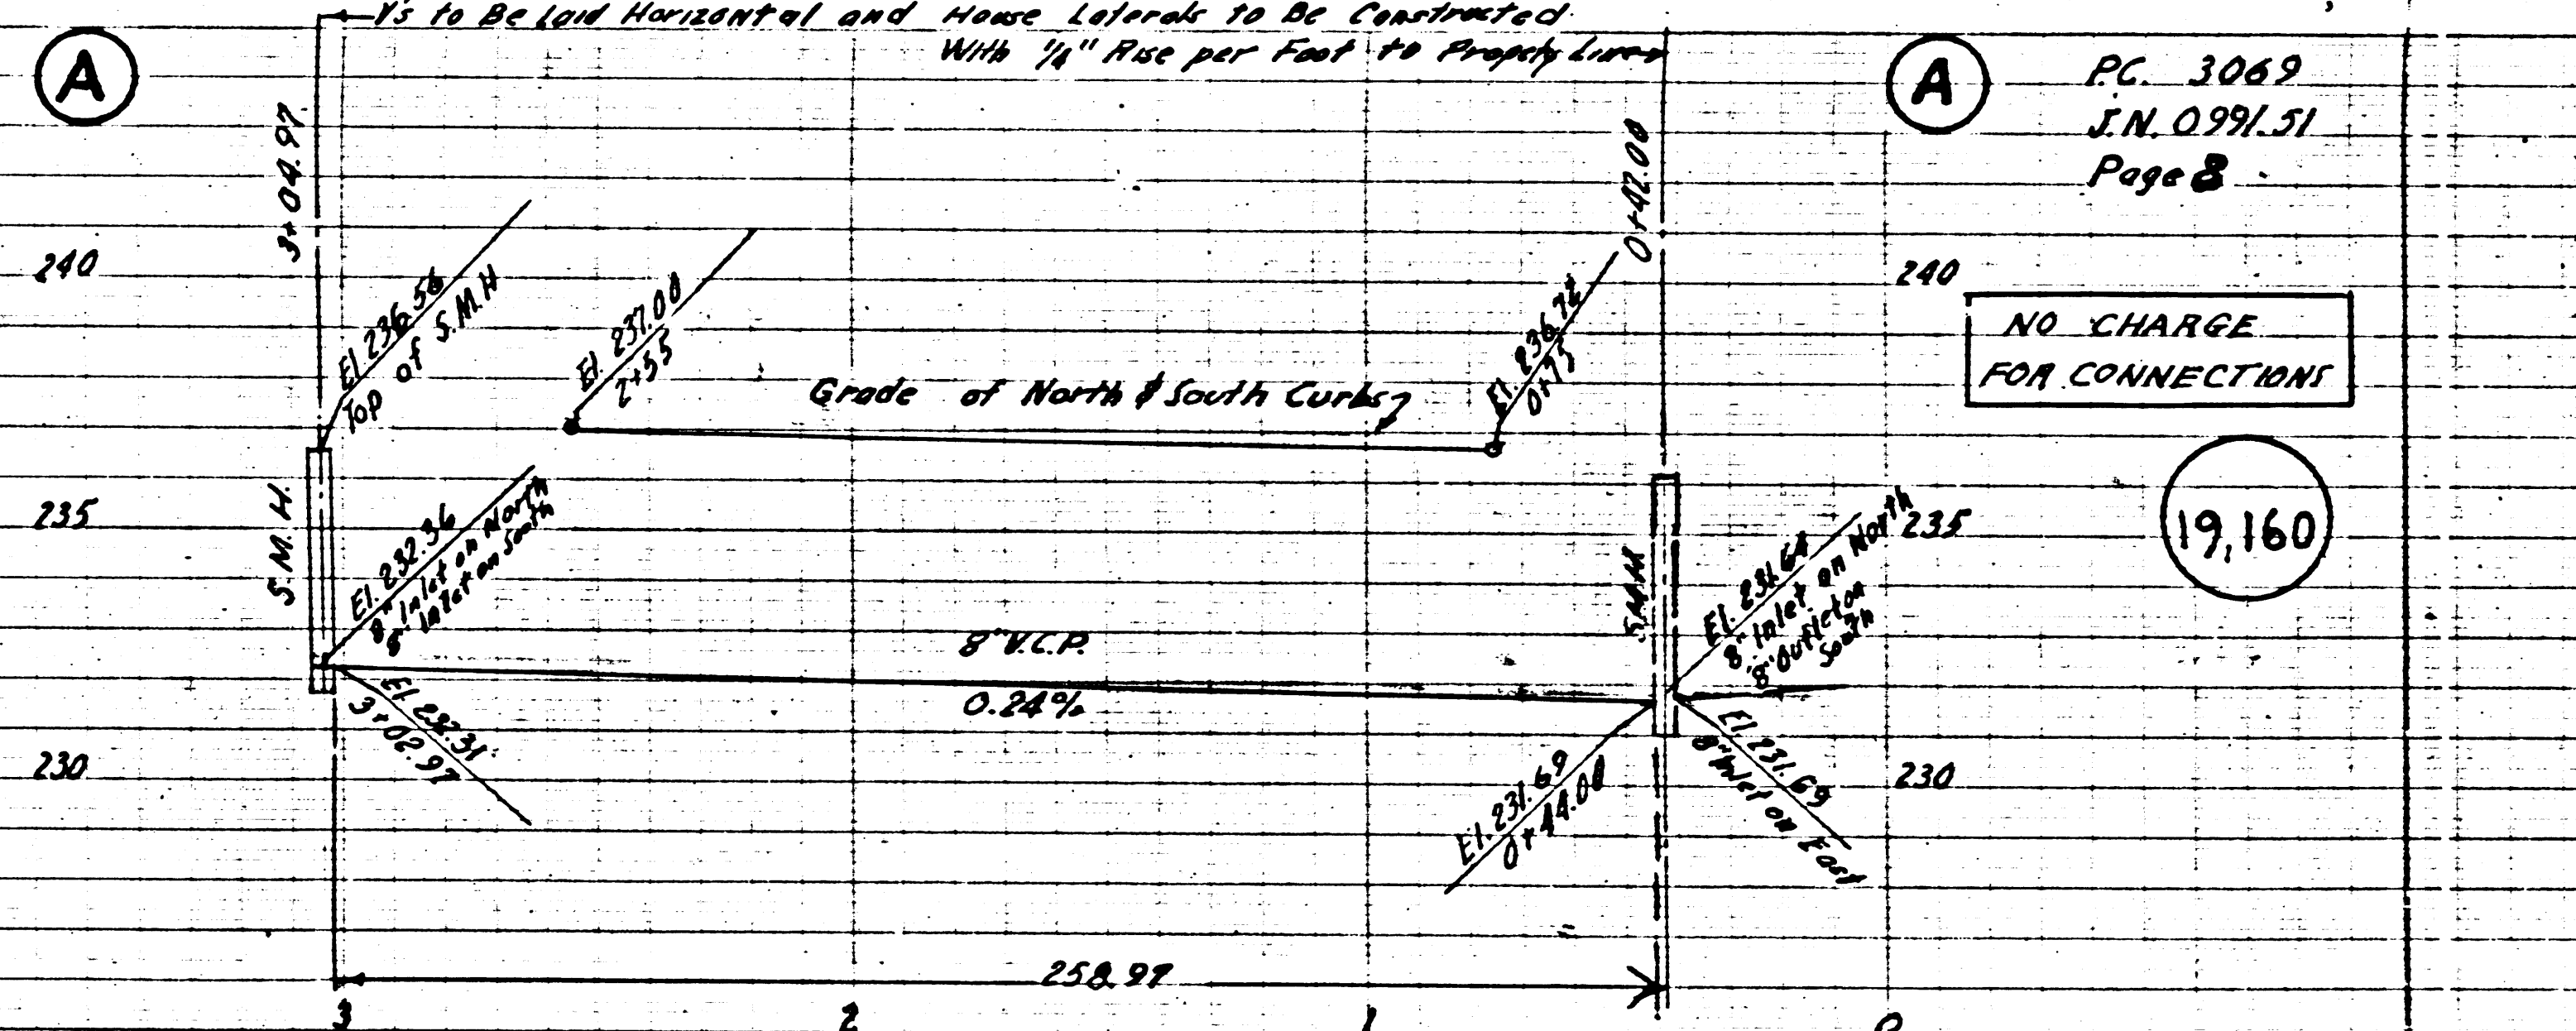 Y's to Be Laid Horizontal and House Laterals to Be Constructed
With 1/4" Rise per Foot to Property Line
A
A
P.C. 3069
J.N. 0991.51
Page 8
3+04.97
0+42.00
240
240
El. 236.56
Top of S.M.H
El. 237.00
2+55
El. 236.72
0+75
Grade of North & South Curbs
NO CHARGE
FOR CONNECTIONS
19,160
235
235
S.M.H.
S.M.H
El. 232.36
8" Inlet on North
8" Inlet on South
El. 231.64
8" Inlet on North
8" Outlet on
South
8" V.C.P.
0.24%
El. 232.31
3+02.97
El. 231.69
0+44.00
El. 231.69
8" Inlet on East
230
230
258.97
3
2
1
0